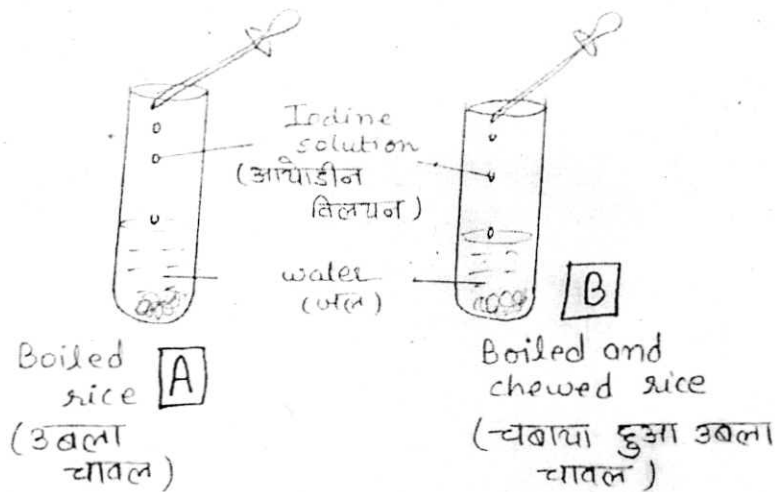 Iodine
solution
(आयोडीन
विलयन)
water
(जल)
Boiled
rice
A
(उबला
चावल)
B
Boiled and
chewed rice
(चबाया हुआ उबला
चावल)